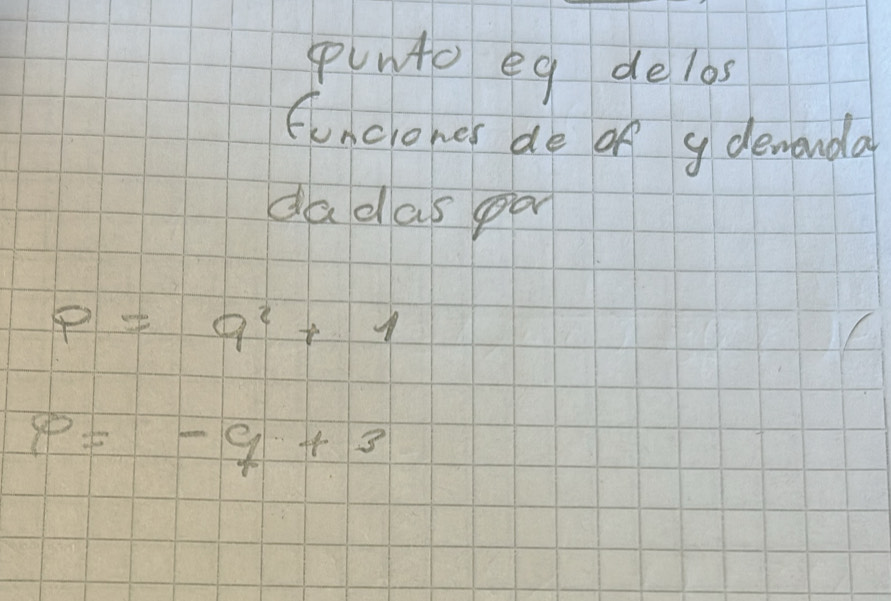 punto eq delos
funciones de of y demanda
dadas por
P = q² + 1
P = - q + 3